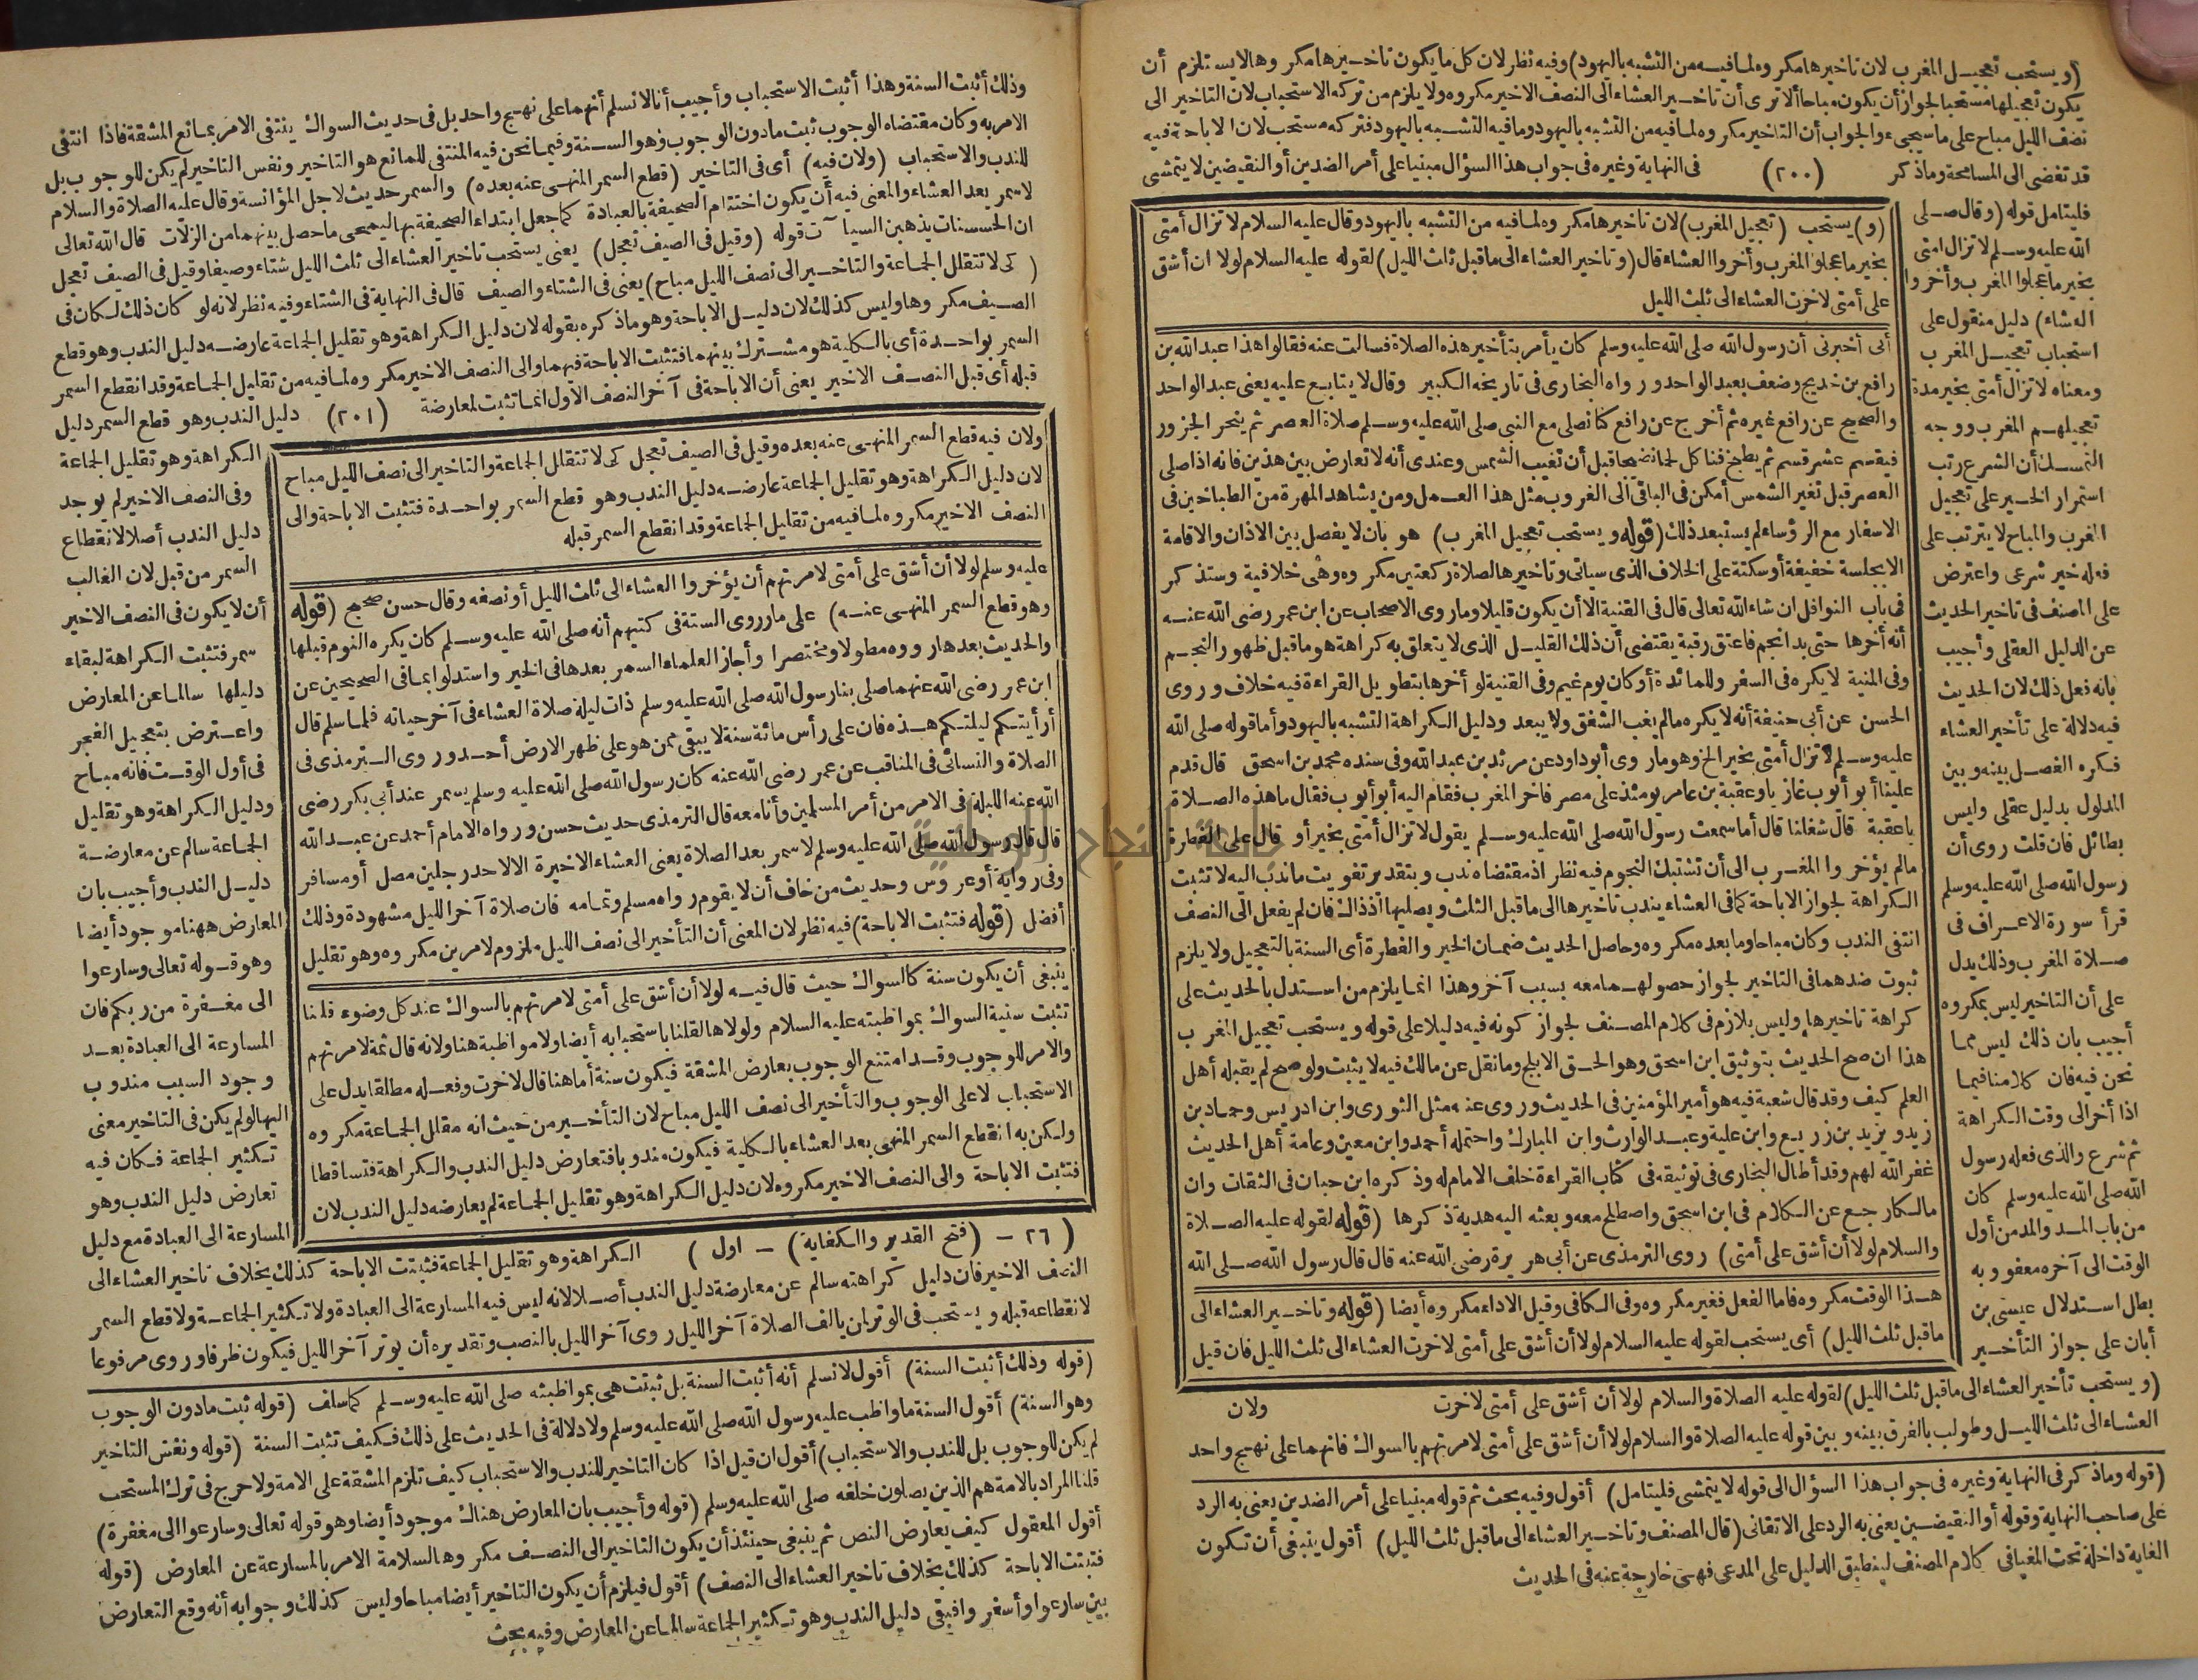 (ويستحب تعجيل المغرب لان تاخيرها مكروه لما فيه من التشبه باليهود) وفيه نظر لان كل ما يكون تاخيرها مكروها لا يستلزم أن
يكون تعجيلها مستحبا لجواز أن يكون مباحا ألا ترى أن تاخير العشاء الى النصف الاخير مكروه ولا يلزم من تركه الاستحباب لان التاخير الى
نصف الليل مباح على ما سيجىء والجواب أن التاخير مكروه لما فيه من التشبه باليهود وما فيه التشبه باليهود فتركه مستحب لان الاباحة فيه
قد تفضى الى المسامحة وما ذكر (٢٠٠) فى النهاية وغيره فى جواب هذا السؤال مبنيا على أمر الضدين أو النقيضين لا يتمشى
فليتامل قوله (وقال صلى
الله عليه وسلم لا تزال امتى
بخير ما عجلوا المغرب وأخروا
العشاء) دليل منقول على
استحباب تعجيل المغرب
ومعناه لا تزال أمتى بخير مدة
تعجيلهم المغرب ووجه
التمسك أن الشرع رتب
استمرار الخير على تعجيل
المغرب والمباح لا يترتب على
فعله خير شرعى واعترض
على المصنف فى تاخير الحديث
عن الدليل العقلى وأجيب
بانه فعل ذلك لان الحديث
فيه دلالة على تأخير العشاء
فكره الفصل بينه وبين
المدلول بدليل عقلى وليس
بطائل فان قلت روى أن
رسول الله صلى الله عليه وسلم
قرأ سورة الاعراف فى
صلاة المغرب وذلك يدل
على أن التاخير ليس بمكروه
أجيب بان ذلك ليس مما
نحن فيه فان كلامنا فيما
اذا أخر الى وقت الكراهة
ثم شرع والذى فعله رسول
الله صلى الله عليه وسلم كان
من باب المد والمد من أول
الوقت الى آخره معفو وبه
بطل استدلال عيسى بن
أبان على جواز التأخير
(و) يستحب (تعجيل المغرب) لان تاخيرها مكروه لما فيه من التشبه باليهود وقال عليه السلام لا تزال أمتى
بخير ما عجلوا المغرب وأخروا العشاء قال (وتاخير العشاء الى ما قبل ثلث الليل) لقوله عليه السلام لولا ان أشق
على أمتى لاخرت العشاء الى ثلث الليل
أبى أخبرنى أن رسول الله صلى الله عليه وسلم كان يأمر بتأخير هذه الصلاة فسالت عنه فقالوا هذا عبد الله بن
رافع بن خديج وضعف بعبد الواحد ورواه البخارى فى تاريخه الكبير وقال لا يتابع عليه يعنى عبد الواحد
والصحيح عن رافع غيره ثم أخرج عن رافع كنا نصلى مع النبى صلى الله عليه وسلم صلاة العصر ثم ينحر الجزور
فيقسم عشر قسم ثم يطبخ فنا كل لحما نضيجا قبل أن تغيب الشمس وعندى أنه لا تعارض بين هذين فانه اذا صلى
العصر قبل تغير الشمس أمكن فى الباقى الى الغروب مثل هذا العمل ومن يشاهد المهرة من الطباخين فى
الاسفار مع الرؤساء لم يستبعد ذلك (قوله ويستحب تعجيل المغرب) هو بان لا يفصل بين الاذان والاقامة
الا بجلسة خفيفة أو سكتة على الخلاف الذى سياتى وتاخيرها لصلاة ركعتين مكروه وهى خلافية وستذكر
فى باب النوافل ان شاء الله تعالى قال فى القنية الا أن يكون قليلا وما روى الاصحاب عن ابن عمر رضى الله عنه
أنه أخرها حتى بدا نجم فاعتق رقبة يقتضى أن ذلك القليل الذى لا يتعلق به كراهة هو ما قبل ظهور النجم
وفى المنية لا يكره فى السفر وللمائدة أو كان يوم غيم وفى القنية لو أخرها بتطويل القراءة فيه خلاف وروى
الحسن عن أبى حنيفة أنه لا يكره ما لم يغب الشفق ولا يبعد ودليل الكراهة التشبه باليهود وأما قوله صلى الله
عليه وسلم لا تزال أمتى بخير الخ وهو ما روى أبو داود عن مرثد بن عبد الله وفى سنده محمد بن اسحق قال قدم
علينا أبو أيوب غازيا وعقبة بن عامر يومئذ على مصر فاخر المغرب فقام اليه أبو أيوب فقال ما هذه الصلاة
يا عقبة قال شغلنا قال أما سمعت رسول الله صلى الله عليه وسلم يقول لا تزال أمتى بخير أو قال على الفطرة
ما لم يؤخروا المغرب الى أن تشتبك النجوم فيه نظر اذ مقتضاه ندب وبتقدير تفويت ما ندب اليه لا تثبت
الكراهة لجواز الاباحة كما فى العشاء يندب تاخيرها الى ما قبل الثلث ويصليها اذ ذاك فان لم يفعل الى النصف
انتفى الندب وكان مباحا وما بعده مكروه وحاصل الحديث ضمان الخير والفطرة أى السنة بالتعجيل ولا يلزم
ثبوت ضدهما فى التاخير لجواز حصولهما معه بسبب آخر وهذا انما يلزم من استدل بالحديث على
كراهة تاخيرها وليس بلازم فى كلام المصنف لجواز كونه فيه دليلا على قوله ويستحب تعجيل المغرب
هذا ان صح الحديث بتوثيق ابن اسحق وهو الحق الابلج وما نقل عن مالك فيه لا يثبت ولو صح لم يقبله أهل
العلم كيف وقد قال شعبة فيه هو أمير المؤمنين فى الحديث وروى عنه مثل الثورى وابن ادريس وحماد بن
زيد ويزيد بن زريع وابن علية وعبد الوارث وابن المبارك واحتمله أحمد وابن معين وعامة أهل الحديث
غفر الله لهم وقد أطال البخارى فى توثيقه فى كتاب القراءة خلف الامام له وذكره ابن حبان فى الثقات وان
مالكا رجع عن الكلام فى ابن اسحق واصطلح معه وبعث اليه هدية ذكرها (قوله لقوله عليه الصلاة
والسلام لولا أن أشق على أمتى) روى الترمذى عن أبى هريرة رضى الله عنه قال قال رسول الله صلى الله
هذا الوقت مكروه فاما الفعل فغير مكروه وفى الكافى وقيل الاداء مكروه أيضا (قوله وتاخير العشاء الى
ما قبل ثلث الليل) أى يستحب لقوله عليه السلام لولا أن أشق على أمتى لاخرت العشاء الى ثلث الليل فان قيل
(ويستحب تأخير العشاء الى ما قبل ثلث الليل) لقوله عليه الصلاة والسلام لولا أن أشق على أمتى لاخرت ولان
العشاء الى ثلث الليل وطولب بالفرق بينه وبين قوله عليه الصلاة والسلام لولا أن أشق على أمتى لامرتهم بالسواك فانهما على نهج واحد
(قوله وما ذكر فى النهاية وغيره فى جواب هذا السؤال الى قوله لا يتمشى فليتامل) أقول وفيه بحث ثم قوله مبنيا على أمر الضدين يعنى به الرد
على صاحب النهاية وقوله أو النقيضين يعنى به الرد على الاتقانى (قال المصنف وتاخير العشاء الى ما قبل ثلث الليل) أقول ينبغى أن تكون
الغاية داخلة تحت المغيا فى كلام المصنف لينطبق الدليل على المدعى فهى خارجة عنه فى الحديث
وذلك أثبت السنة وهذا أثبت الاستحباب وأجيب أنا لا نسلم أنهما على نهج واحد بل فى حديث السواك ينتفى الامر بمانع المشقة فاذا انتفى
الامر به وكان مقتضاه الوجوب ثبت ما دون الوجوب وهو السنة وفيما نحن فيه المنتفى للمانع هو التاخير ونفس التاخير لم يكن للوجوب بل
للندب والاستحباب (ولان فيه) أى فى التاخير (قطع السمر المنهى عنه بعده) والسمر حديث لاجل المؤانسة وقال عليه الصلاة والسلام
لا سمر بعد العشاء والمعنى فيه أن يكون اختتام الصحيفة بالعبادة كما جعل ابتداء الصحيفة بها ليمحى ما حصل بينهما من الزلات قال الله تعالى
ان الحسنات يذهبن السيآت قوله (وقيل فى الصيف تعجل) يعنى يستحب تاخير العشاء الى ثلث الليل شتاء وصيفا وقيل فى الصيف تعجل
(كى لا تتقلل الجماعة والتاخير الى نصف الليل مباح) يعنى فى الشتاء والصيف قال فى النهاية فى الشتاء وفيه نظر لانه لو كان ذلك لكان فى
الصيف مكروها وليس كذلك لان دليل الاباحة وهو ما ذكره بقوله لان دليل الكراهة وهو تقليل الجماعة عارضه دليل الندب وهو قطع
السمر بواحدة أى بالكلية هو مشترك بينهما فتثبت الاباحة فيهما والى النصف الاخير مكروه لما فيه من تقليل الجماعة وقد انقطع السمر
قبله أى قبل النصف الاخير يعنى أن الاباحة فى آخر النصف الاول انما تثبت لمعارضة (٢٠١) دليل الندب وهو قطع السمر دليل
الكراهة وهو تقليل الجماعة
وفى النصف الاخير لم يوجد
دليل الندب أصلا لانقطاع
السمر من قبل لان الغالب
أن لا يكون فى النصف الاخير
سمر فتثبت الكراهة لبقاء
دليلها سالما عن المعارض
واعترض بتعجيل الفجر
فى أول الوقت فانه مباح
ودليل الكراهة وهو تقليل
الجماعة سالم عن معارضة
دليل الندب وأجيب بان
المعارض ههنا موجود أيضا
وهو قوله تعالى وسارعوا
الى مغفرة من ربكم فان
المسارعة الى العبادة بعد
وجود السبب مندوب
اليها ولم يكن فى التاخير معنى
تكثير الجماعة فكان فيه
تعارض دليل الندب وهو
المسارعة الى العبادة مع دليل
ولان فيه قطع السمر المنهى عنه بعده وقيل فى الصيف تعجل كى لا تتقلل الجماعة والتاخير الى نصف الليل مباح
لان دليل الكراهة وهو تقليل الجماعة عارضه دليل الندب وهو قطع السمر بواحدة فتثبت الاباحة والى
النصف الاخير مكروه لما فيه من تقليل الجماعة وقد انقطع السمر قبله
عليه وسلم لولا أن أشق على أمتى لامرتهم أن يؤخروا العشاء الى ثلث الليل أو نصفه وقال حسن صحيح (قوله
وهو قطع السمر المنهى عنه) على ما روى الستة فى كتبهم أنه صلى الله عليه وسلم كان يكره النوم قبلها
والحديث بعدها رووه مطولا ومختصرا وأجاز العلماء السمر بعدها فى الخير واستدلوا بما فى الصحيحين عن
ابن عمر رضى الله عنهما صلى بنا رسول الله صلى الله عليه وسلم ذات ليلة صلاة العشاء فى آخر حياته فلما سلم قال
أرأيتكم ليلتكم هذه فان على رأس مائة سنة لا يبقى ممن هو على ظهر الارض أحد وروى الترمذى فى
الصلاة والنسائى فى المناقب عن عمر رضى الله عنه كان رسول الله صلى الله عليه وسلم يسمر عند أبى بكر رضى
الله عنه الليلة فى الامر من أمر المسلمين وأنا معه قال الترمذى حديث حسن ورواه الامام أحمد عن عبد الله
قال قال رسول الله صلى الله عليه وسلم لا سمر بعد الصلاة يعنى العشاء الاخيرة الا لاحد رجلين مصل أو مسافر
وفى رواية أو عروس وحديث من خاف أن لا يقوم رواه مسلم وتمامه فان صلاة آخر الليل مشهودة وذلك
أفضل (قوله فتثبت الاباحة) فيه نظر لان المعنى أن التأخير الى نصف الليل ملزوم لامرين مكروه وهو تقليل
ينبغى أن يكون سنة كالسواك حيث قال فيه لولا أن أشق على أمتى لامرتهم بالسواك عند كل وضوء قلنا
تثبت سنية السواك بمواظبته عليه السلام ولولاها لقلنا باستحبابه أيضا ولا مواظبة هنا ولانه قال ثمة لامرتهم
والامر للوجوب وقد امتنع الوجوب بعارض المشقة فيكون سنة أما هنا قال لاخرت وفعله مطلقا يدل على
الاستحباب لا على الوجوب والتأخير الى نصف الليل مباح لان التأخير من حيث انه مقلل الجماعة مكروه
ولكن به انقطع السمر المنهى بعد العشاء بالكلية فيكون مندوبا فتعارض دليل الندب والكراهة فتساقطا
فتثبت الاباحة والى النصف الاخير مكروه لان دليل الكراهة وهو تقليل الجماعة لم يعارضه دليل الندب لان
(٢٦ - (فتح القدير والكفاية) - اول) الكراهة وهو تقليل الجماعة فثبتت الاباحة كذلك بخلاف تاخير العشاء الى
النصف الاخير فان دليل كراهته سالم عن معارضة دليل الندب أصلا لانه ليس فيه المسارعة الى العبادة ولا تكثير الجماعة ولا قطع السمر
لانقطاعه قبله ويستحب فى الوتر لمن يالف الصلاة آخر الليل روى آخر الليل بالنصب وتقديره أن يوتر آخر الليل فيكون ظرفا وروى مرفوعا
(قوله وذلك أثبت السنة) أقول لا نسلم أنه أثبت السنة بل ثبتت هى بمواظبته صلى الله عليه وسلم كما سلف (قوله ثبت ما دون الوجوب
وهو السنة) أقول السنة ما واظب عليه رسول الله صلى الله عليه وسلم ولا دلالة فى الحديث على ذلك فكيف تثبت السنة (قوله ونفس التاخير
لم يكن للوجوب بل للندب والاستحباب) أقول ان قيل اذا كان التاخير للندب والاستحباب كيف تلزم المشقة على الامة ولا حرج فى ترك المستحب
قلنا المراد بالامة هم الذين يصلون خلفه صلى الله عليه وسلم (قوله وأجيب بان المعارض هناك موجود أيضا وهو قوله تعالى وسارعوا الى مغفرة)
أقول المعقول كيف يعارض النص ثم ينبغى حينئذ أن يكون التاخير الى النصف مكروها لسلامة الامر بالمسارعة عن المعارض (قوله
فثبتت الاباحة كذلك بخلاف تاخير العشاء الى النصف) أقول فيلزم أن يكون التاخير أيضا مباحا وليس كذلك وجوابه أنه وقع التعارض
بين سارعوا وأسفروا فبقى دليل الندب وهو تكثير الجماعة سالما عن المعارض وفيه بحث
جامعة النجاح الوطنية